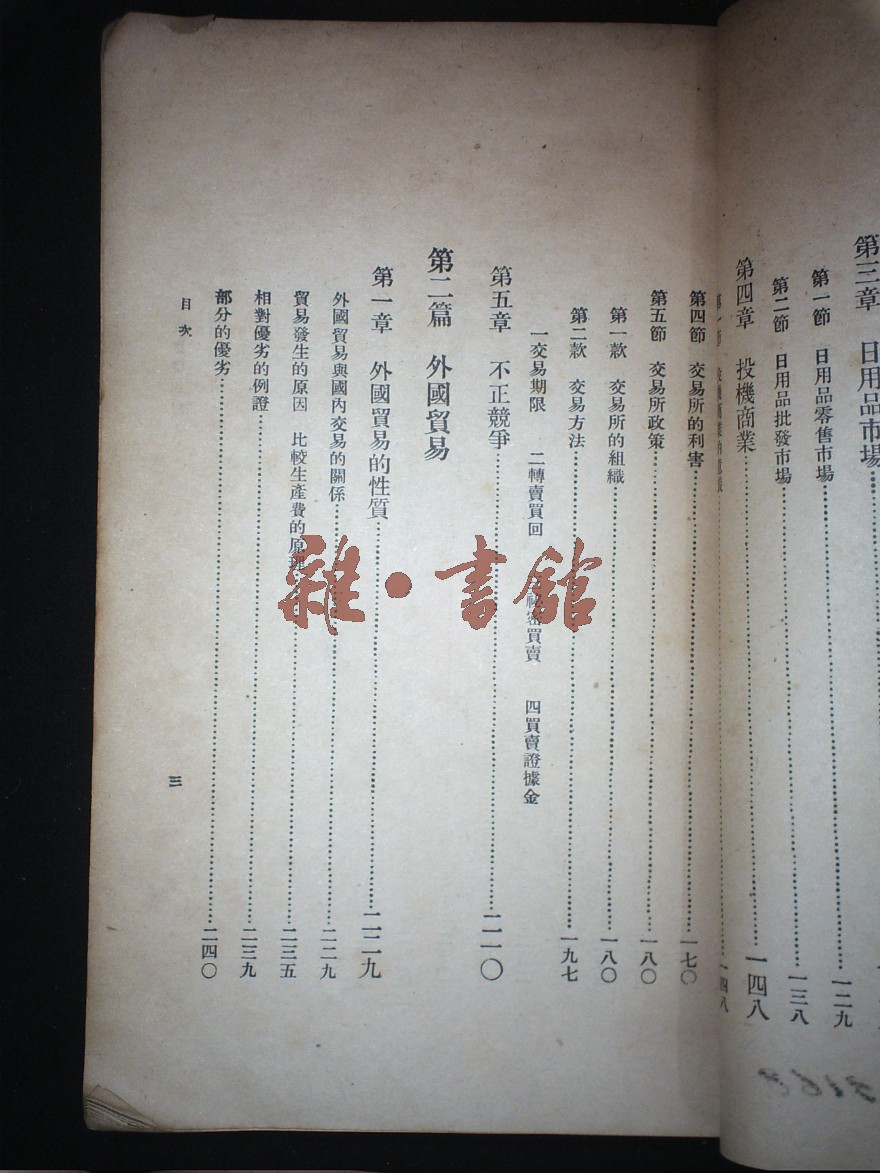 第三章　日用品市場
第一節　日用品零售市場……一二九
第二節　日用品批發市場……一三八
第四章　投機商業……一四八
第四節　交易所的利害……一七〇
第五節　交易所政策……一八〇
第一款　交易所的組織……一八〇
第二款　交易方法……一九七
一交易期限　二轉賣買回　祕密買賣　四買賣證據金
第五章　不正競爭……二一〇
第二篇　外國貿易
第一章　外國貿易的性質……二二九
外國貿易與國內交易的關係……二二九
貿易發生的原因　比較生產費的原理……二三五
相對優劣的例證……二三九
部分的優劣……二四〇
目次
三
雜·書館